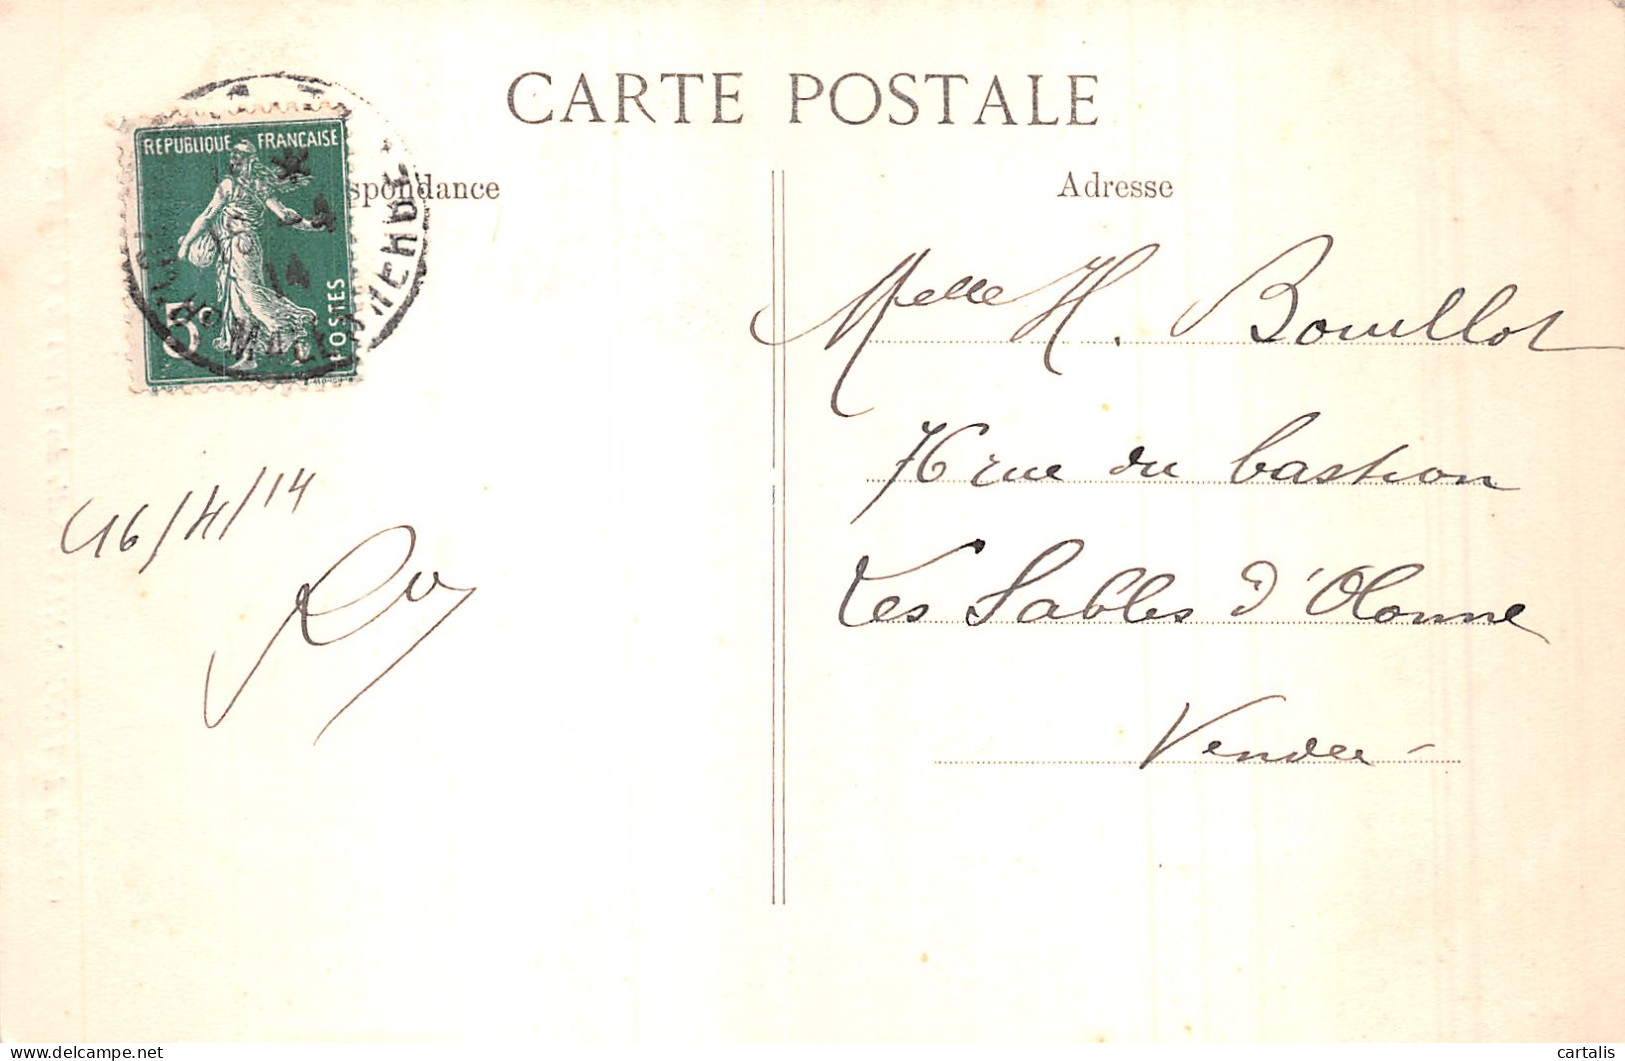 CARTE POSTALE
REPUBLIQUE FRANCAISE
5c
POSTES
14
MALESHERBES
spondance
Adresse
Melle H. Bouillot
76 rue du bastion
Les Sables d'Olonne
Vendée
16/4/14
delcampe.net
cartalis